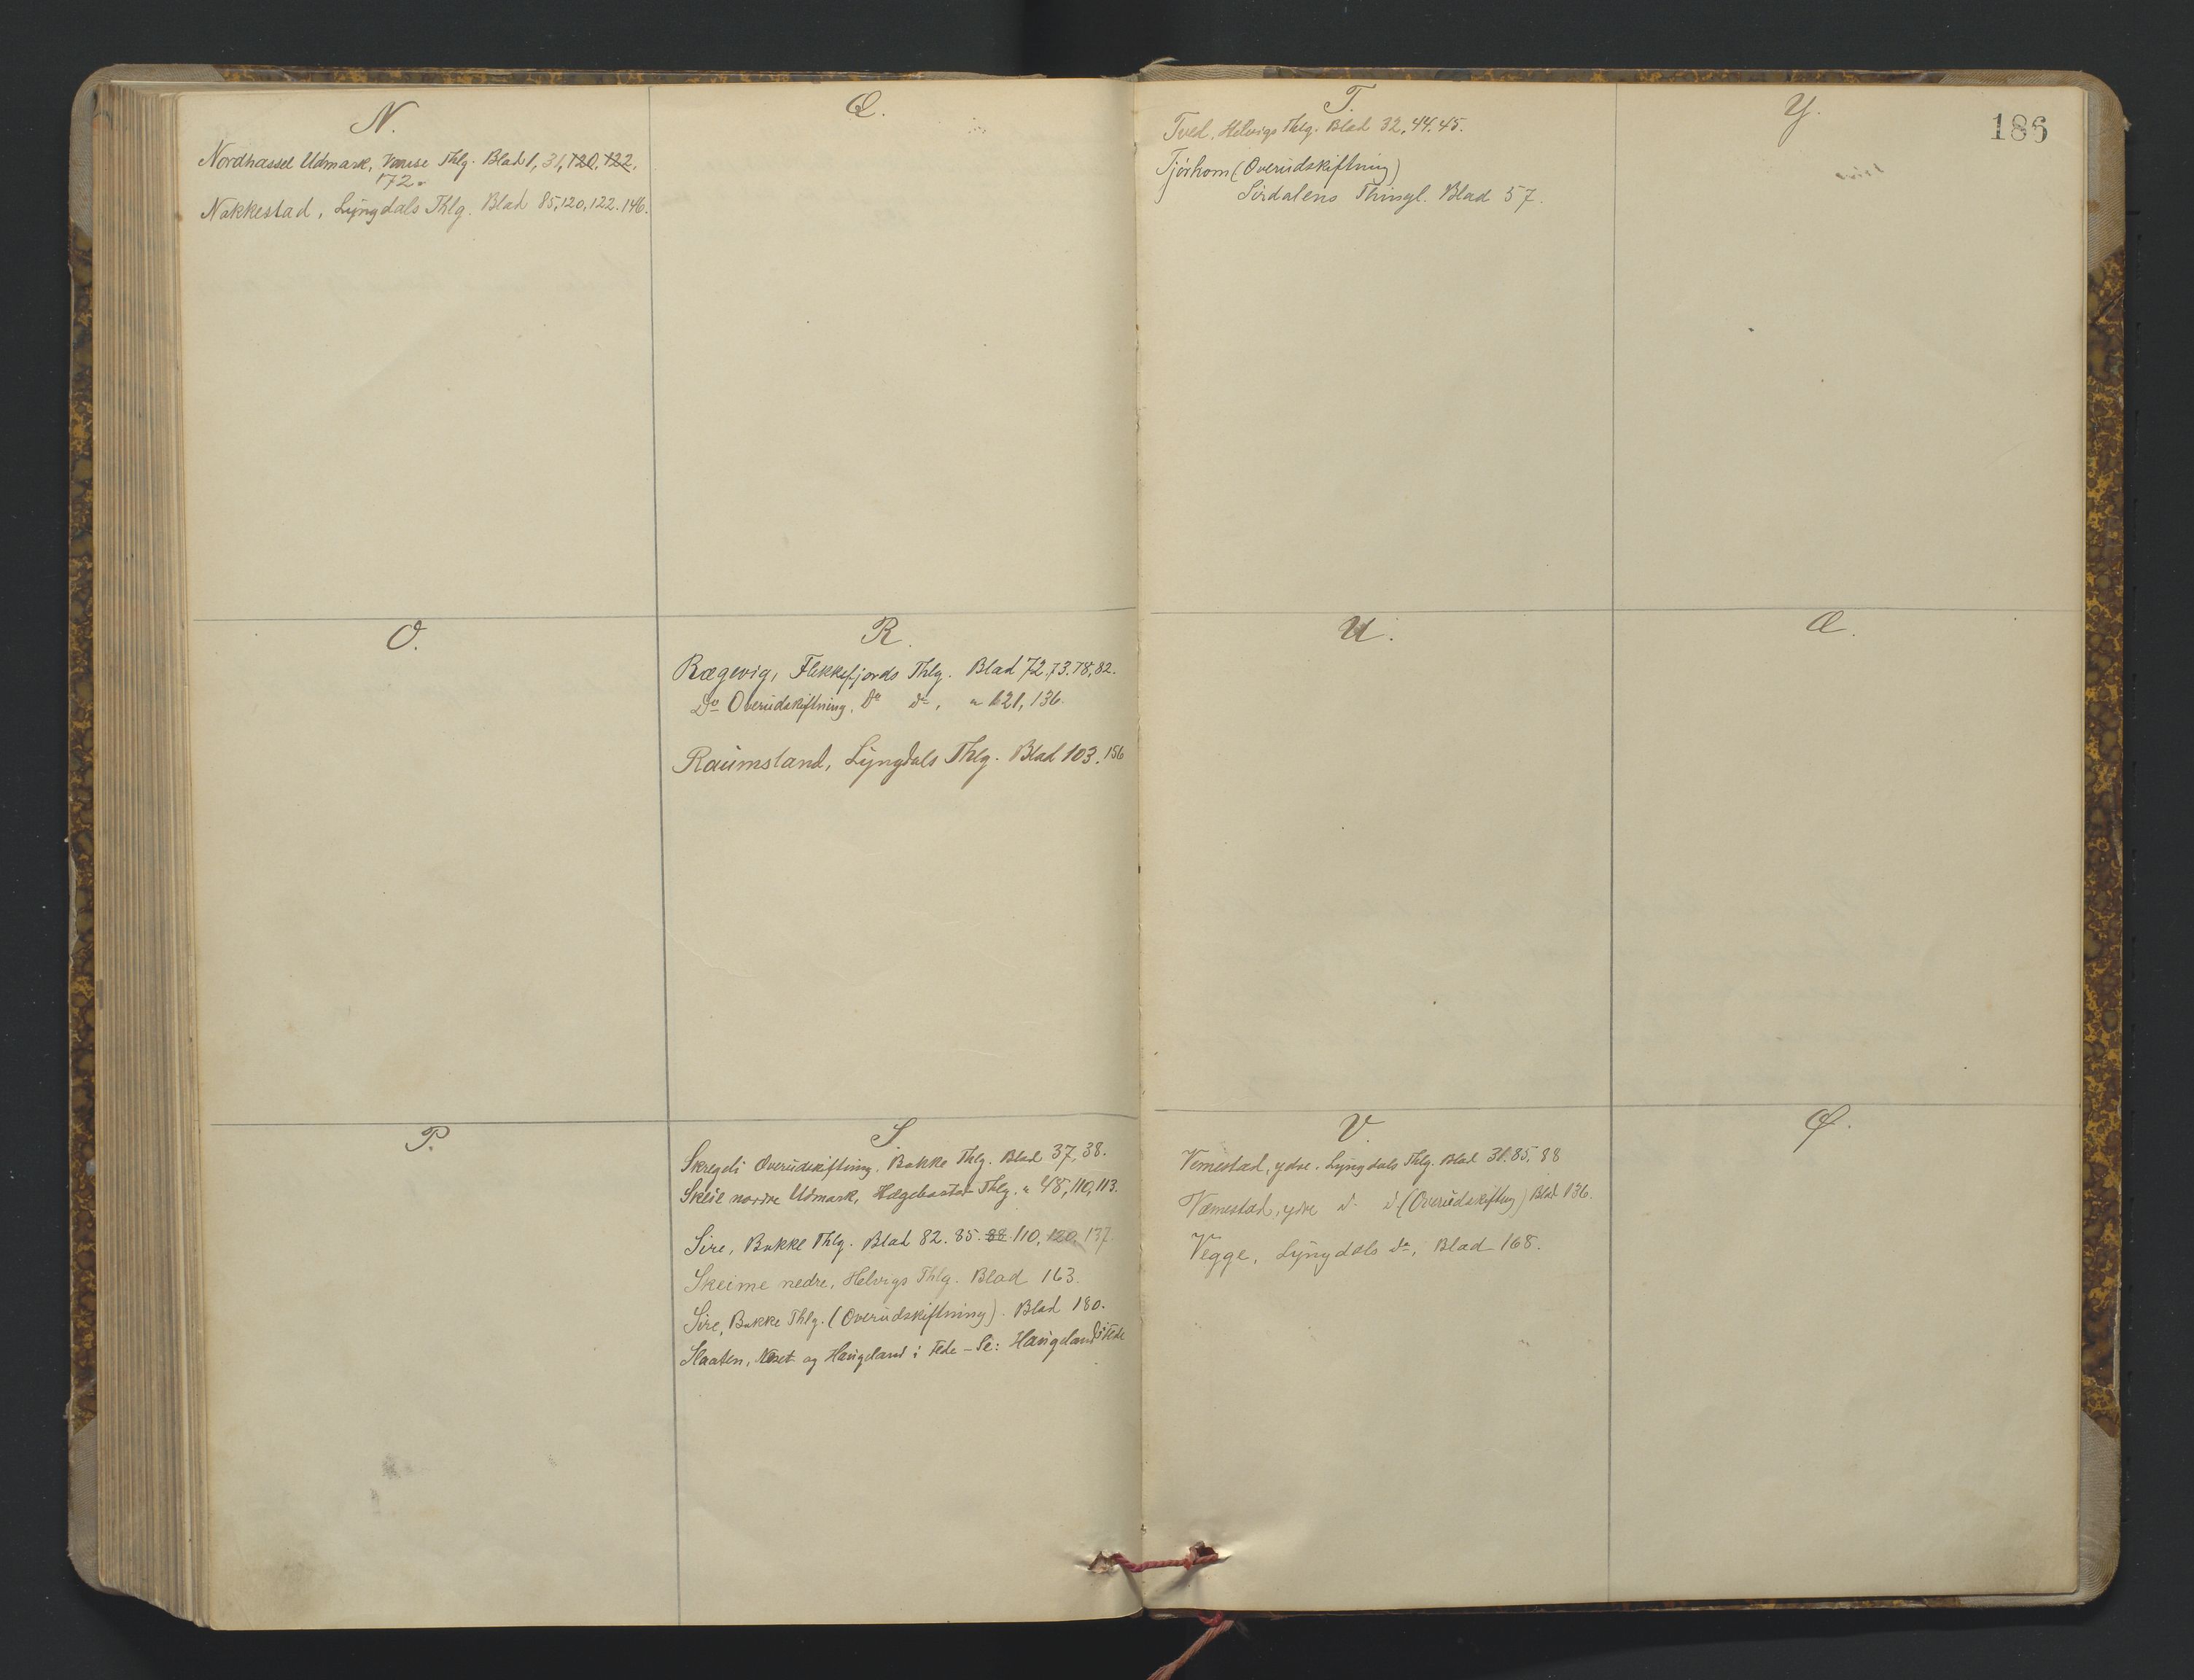 N.
Nordhassel Udmark, Vanse Thlg. Blad 1, 31, 120, 122,
172.
Nakkestad, Lyngdals Thlg. Blad 85, 120, 122. 146.
O.
P.
Q.
R.
Rægevig, Flekkefjords Thlg. Blad 72, 73. 78, 82.
Do Overudskiftning. Do do, " 121, 136.
Raumstand, Lyngdals Thlg. Blad 103. 156
S.
Skregeli Overudskiftning. Bakke Thlg. Blad 37, 38.
Skeie nordre Udmark, Hægebostad Thlg. " 48, 110, 113.
Sire, Bakke Thlg. Blad 82. 85. 88. 110, 120, 137.
Skeime nedre, Helvigs Thlg. Blad 163.
Sire, Bakke Thlg. (Overudskiftning). Blad 180.
Slaaten, Næset og Haugeland i Fede - Se: Haugeland i Fede
T.
Tved, Helvigs Thlg. Blad 32, 44. 45.
Tjørhom (Overudskiftning)
Sirdalens Thingl. Blad 57.
U.
V.
Vemestad, ydre. Lyngdals Thlg. Blad 31. 85. 88
Væmestad, ydre d d (Overudskiftng) Blad 136.
Vegge, Lyngdals do, Blad 168.
Y.
186
Æ.
Ø.